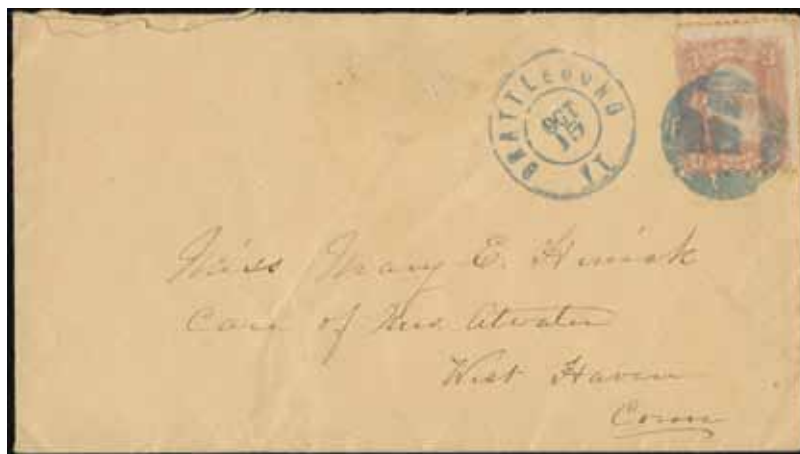 BRATTLEBORO VT
OCT
3
Miss Mary E.
Care of Mrs. Atwater
West Haven
Conn